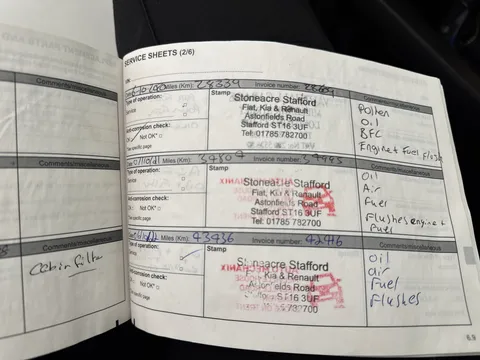 SERVICE SHEETS (2/6)
VIN:
Miles (Km): 28339 Invoice number:
Comments/miscellaneous
Type of operation:
Service
Anti-corrosion check:
OK Not OK*
*See specific page
Stamp
Stoneacre Stafford
Fiat, Kia & Renault
Astonfields Road
Stafford ST16 3UF
Tel: 01785 782700
Pollen
Oil
BFC
Engine + Fuel Flush
Miles (Km): 37807 Invoice number: 37445
Comments/miscellaneous
Type of operation:
Service
Anti-corrosion check:
OK Not OK*
*See specific page
Stamp
Stoneacre Stafford
Fiat, Kia & Renault
Astonfields Road
Stafford ST16 3UF
Tel: 01785 782700
Oil
Air
Fuel
Flushes engine +
Fuel
Miles (Km): 43436 Invoice number: 4246
Comments/miscellaneous
Type of operation:
Service
Anti-corrosion check:
OK Not OK*
*See specific page
Stamp
Stoneacre Stafford
Kia & Renault
Astonfields Road
Stafford ST16 3UF
oil
air
Fuel
Flushes
6.9
Comments/miscellaneous
Comments/miscellaneous
Comments/miscellaneous
Cabin filter